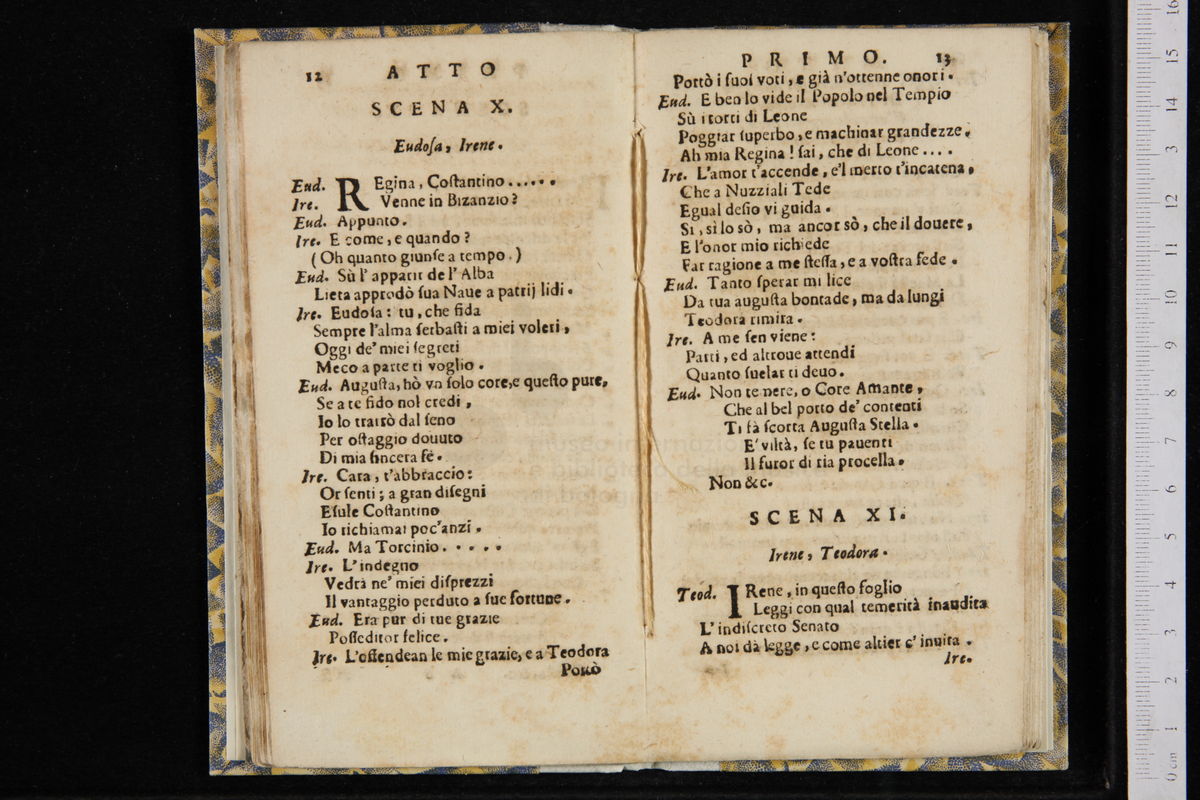 12 ATTO
SCENA X.
Eudoſa, Irene.
Eud. REgina, Coſtantino......
Ire. Venne in Bizanzio?
Eud. Appunto.
Ire. E come, e quando?
(Oh quanto giunſe a tempo.)
Eud. Sù l' apparir de l' Alba
Lieta approdò ſua Naue a patrij lidi.
Ire. Eudoſa: tu, che fida
Sempre l'alma ſerbaſti a miei voleri,
Oggi de' miei ſegreti
Meco a parte ti voglio.
Eud. Auguſta, hò vn ſolo core, e queſto pure,
Se a te fido nol credi,
Io lo trarrò dal ſeno
Per oſtaggio douuto
Di mia ſincera fè.
Ire. Cara, t'abbraccio:
Or ſenti; a gran diſegni
Eſule Coſtantino
Io richiamai poc'anzi.
Eud. Ma Torcinio.....
Ire. L'indegno
Vedrà ne' miei diſprezzi
Il vantaggio perduto a ſue fortune.
Eud. Era pur di tue grazie
Poſſeditor felice.
Ire. L'offendean le mie grazie, e a Teodora
Portò
PRIMO. 13
Portò i ſuoi voti, e già n'ottenne onori.
Eud. E ben lo vide il Popolo nel Tempio
Sù i torti di Leone
Poggiar ſuperbo, e machinar grandezze.
Ah mia Regina! ſai, che di Leone....
Ire. L'amor t'accende, e'l merto t'incatena,
Che a Nuzziali Tede
Egual deſio vi guida.
Si, sì lo sò, ma ancor sò, che il douere,
E l'onor mio richiede
Far ragione a me ſteſſa, e a voſtra fede.
Eud. Tanto ſperar mi lice
Da tua auguſta bontade, ma da lungi
Teodora rimira.
Ire. A me ſen viene:
Parti, ed altroue attendi
Quanto ſuelar ti deuo.
Eud. Non temere, o Core Amante,
Che al bel porto de' contenti
Ti fà ſcorta Auguſta Stella.
E' viltà, ſe tu pauenti
Il furor di ria procella.
Non &c.
SCENA XI.
Irene, Teodora.
Teod. IRene, in queſto foglio
Leggi con qual temerità inaudita
L' indiſcreto Senato
A noi dà legge, e come altier c' inuita.
Ire.